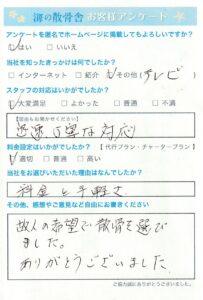 海の散骨舎 お客様アンケート
アンケートを匿名でホームページに掲載してもよろしいですか?
✓はい □いいえ
当社を知ったきっかけは何でしたか?
□インターネット □紹介 ✓その他(テレビ)
スタッフの対応はいかがでしたか?
✓大変満足 □よかった □普通 □不満
【理由もお聞かせください】
迅速、丁寧な対応
料金設定はいかがでしたか? 【代行プラン・チャータープラン】
✓適切 □普通 □高い
当社をお選びいただいた理由はなんでしたか?
料金と手軽さ
その他、感想やご意見など自由にお書きください
故人の希望で散骨を選び
ました。
ありがとうございました。
ご協力誠にありがとうございました。